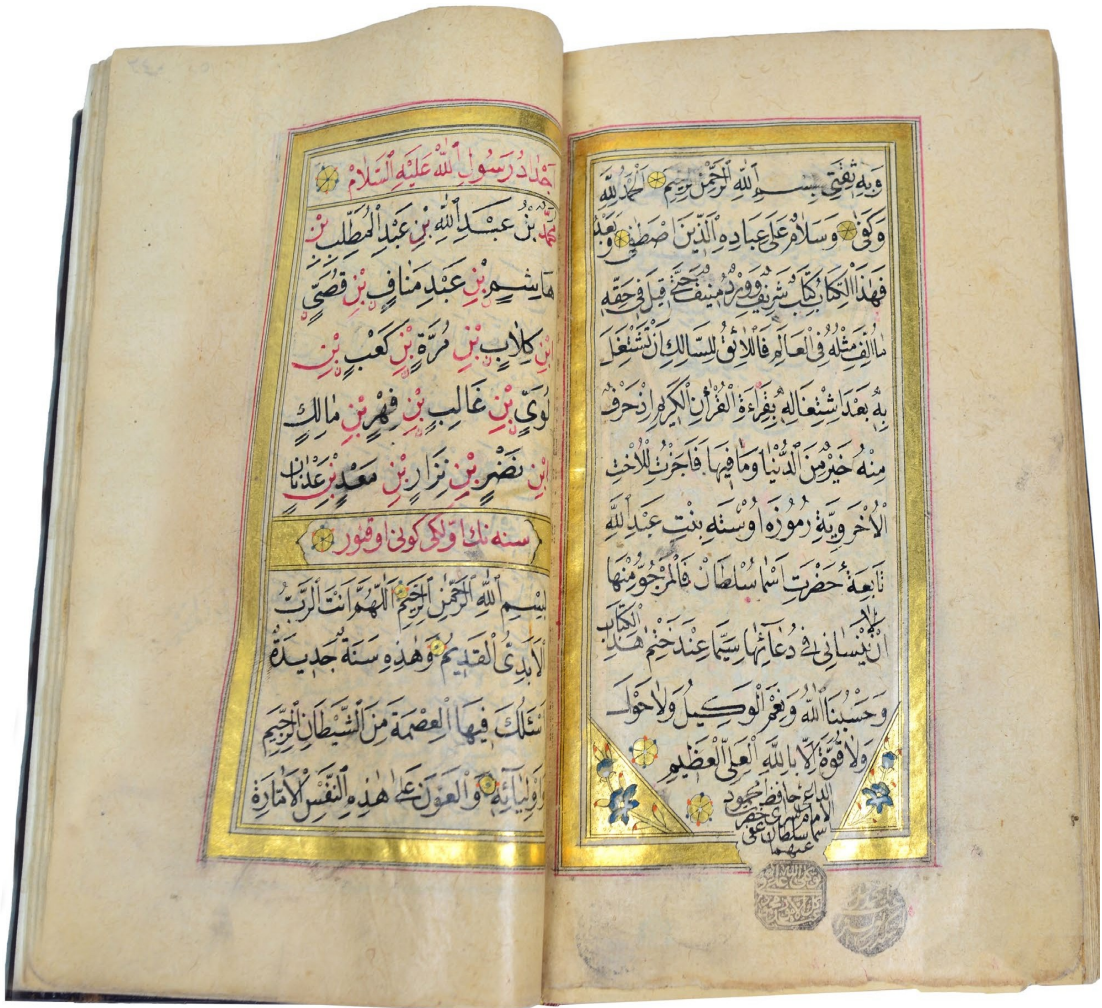 وَبِهِ ثِقَتِي بِسْمِ اللّٰهِ الرَّحْمٰنِ الرَّحِيمِ الْحَمْدُ لِلّٰهِ
وَكَفٰى وَسَلَامٌ عَلٰى عِبَادِهِ الَّذِينَ اصْطَفٰى وَبَعْدُ
فَهٰذَا الْكِتَابُ كِتَابٌ شَرِيفٌ وَوِرْدٌ مُنِيفٌ حَتّٰى قِيلَ فِي حَقِّهِ
مَا اُلِّفَ مِثْلُهُ فِي الْعَالَمِ فَاللَّائِقُ لِلسَّالِكِ اَنْ تَشْتَغِلَ
بِهِ بَعْدَ اشْتِغَالِهِ بِقِرَاءَةِ الْقُرْاٰنِ الْكَرِيمِ اِذْ حَرْفٌ
مِنْهُ خَيْرٌ مِنَ الدُّنْيَا وَمَا فِيهَا فَاَجَزْتُ لِلْاُخْتِ
الْاُخْرَوِيَّةِ رموزه اوسته بِنْتِ عَبْدِ اللّٰهِ
تَابِعَةُ حَضْرَتِ اَسْمَا سُلْطَان فَالْمَرْجُوُّ مِنْهَا
اَنْ لَا يَنْسَانِي فِي دُعَائِهَا سِيَّمَا عِنْدَ خَتْمِ هٰذَا الْكِتَابِ
وَحَسْبُنَا اللّٰهُ وَنِعْمَ الْوَكِيلُ وَلَا حَوْلَ
وَلَا قُوَّةَ اِلَّا بِاللّٰهِ الْعَلِيِّ الْعَظِيمِ
الداعي حافظ محمود
الامام سراى حضرت
اسما سلطان عفى
عنهما
اَجْدَادُ رَسُولِ اللّٰهِ عَلَيْهِ السَّلَامْ
مُحَمَّدُ بْنُ عَبْدِ اللّٰهِ بْنِ عَبْدِ الْمُطَّلِبِ بْنِ
هَاشِمٍ بْنِ عَبْدِ مَنَافٍ بْنِ قُصَيٍّ
ابْنِ كِلَابٍ بْنِ مُرَّةٍ بْنِ كَعْبٍ بْنِ
لُوَيٍّ بْنِ غَالِبٍ بْنِ فِهْرٍ بْنِ مَالِكٍ
ابْنِ نَضْرٍ بْنِ نِزَارٍ بْنِ مَعَدٍ بْنِ عَدْنَانَ
سنه نك اولكى كونى اوقنور
بِسْمِ اللّٰهِ الرَّحْمٰنِ الرَّحِيمِ اَللّٰهُمَّ اَنْتَ الرَّبُّ
الْاَبَدِىُّ الْقَدِيمُ وَهٰذِهِ سَنَةٌ جَدِيدَةٌ
اَسْئَلُكَ فِيهَا الْعِصْمَةَ مِنَ الشَّيْطَانِ الرَّجِيمِ
وَاَوْلِيَائِهِ وَالْعَوْنَ عَلٰى هٰذِهِ النَّفْسِ الْاَمَّارَةِ